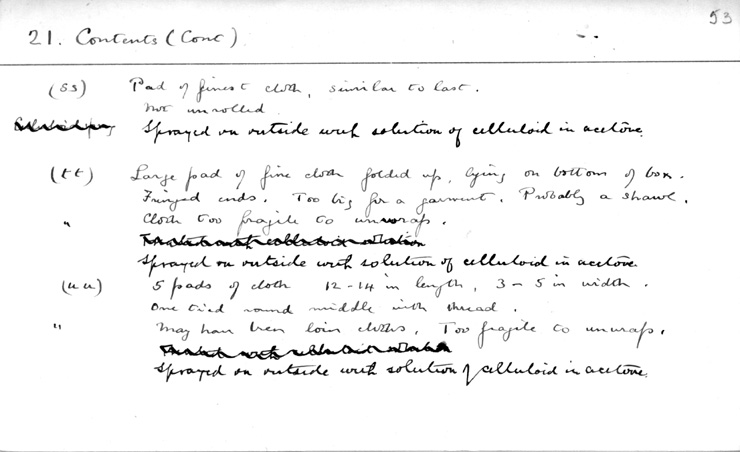 53
21. Contents (Cont)
(ss) Pad of finest cloth, similar to last.
Not unrolled
Sprayed on outside with solution of celluloid in acetone.
(tt) Large pad of fine cloth folded up, lying on bottom of box.
Fringed ends. Too big for a garment. Probably a shawl.
" Cloth too fragile to unwrap.
Sprayed on outside with solution of celluloid in acetone.
(uu) 5 pads of cloth 12-14 in length, 3-5 in width.
One tied round middle with thread.
" May have been loin cloths. Too fragile to unwrap.
Sprayed on outside with solution of celluloid in acetone.